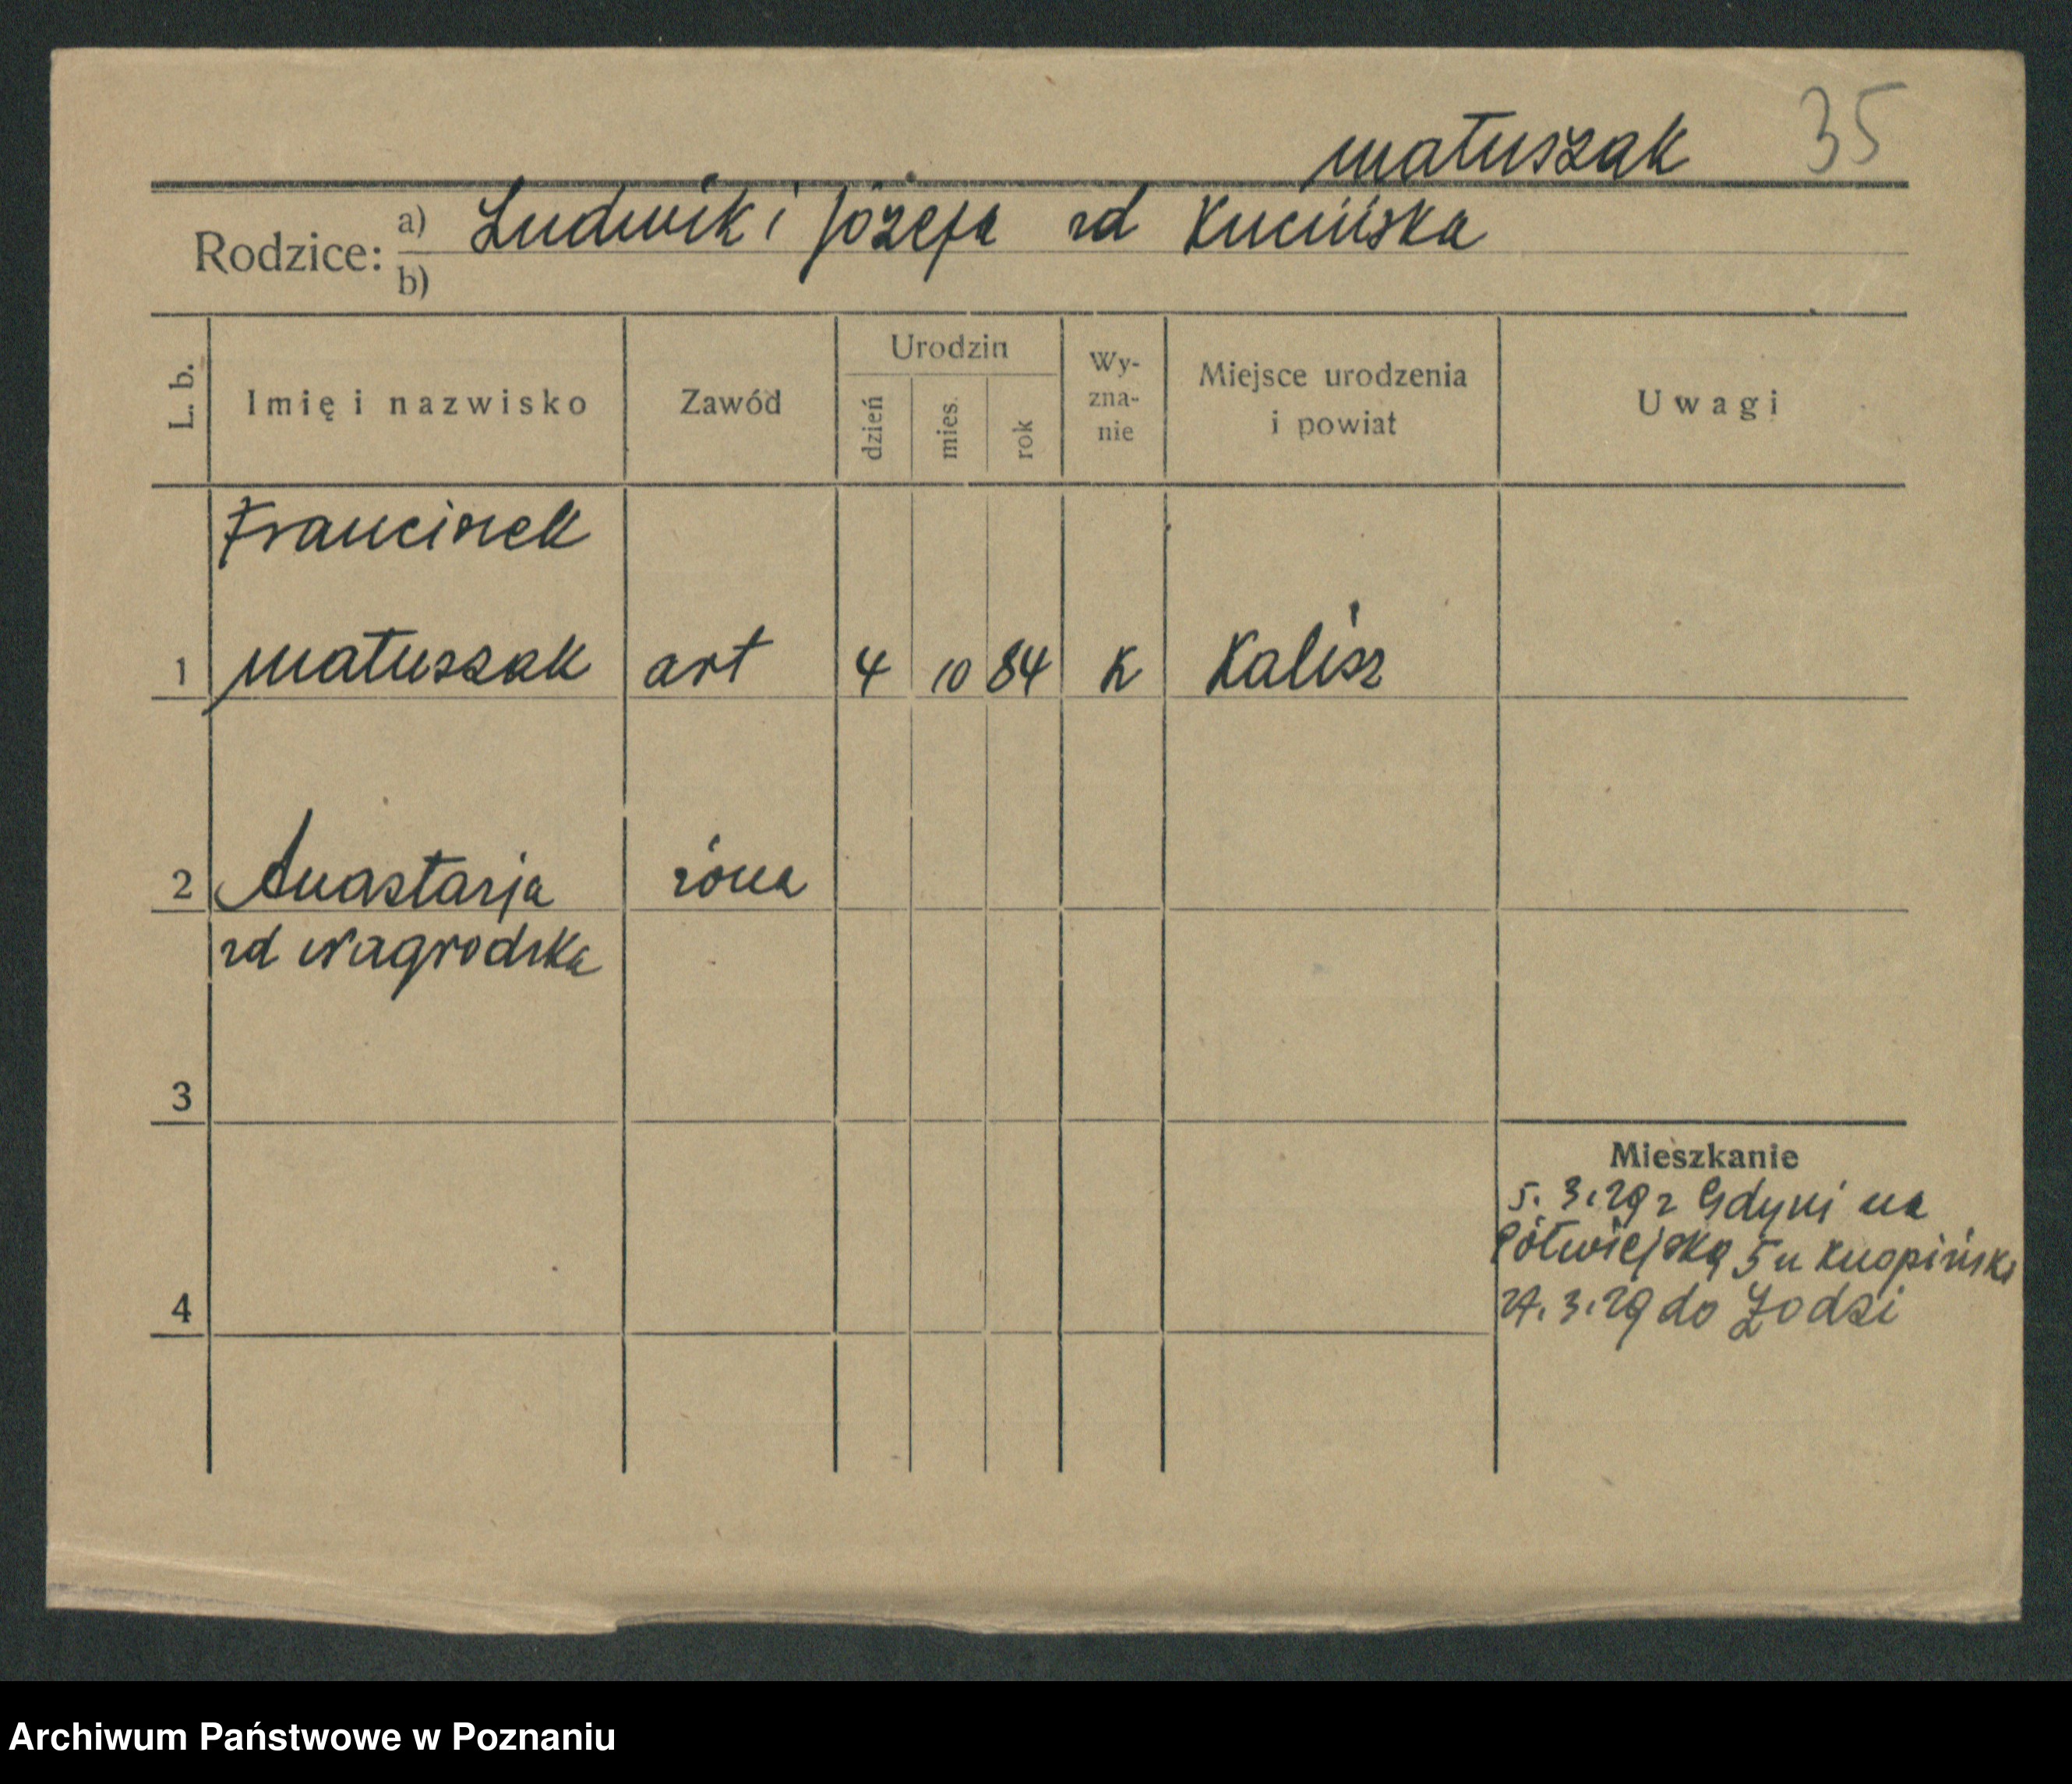 Matuszak 35
Rodzice: a) Ludwik i Józefa zd Kucińska
b)
L. b. Imię i nazwisko Zawód Urodzin dzień mies. rok Wy-zna-nie Miejsce urodzenia i powiat Uwagi
Franciszek
1 Matuszak art 4 10 84 K Kalisz
2 Anastazja żona
zd Nagrodzka
3
Mieszkanie
5. 3. 29 z Gdyni na
Półwiejską 5 u
4 27. 3. 29 do Łodzi
Archiwum Państwowe w Poznaniu